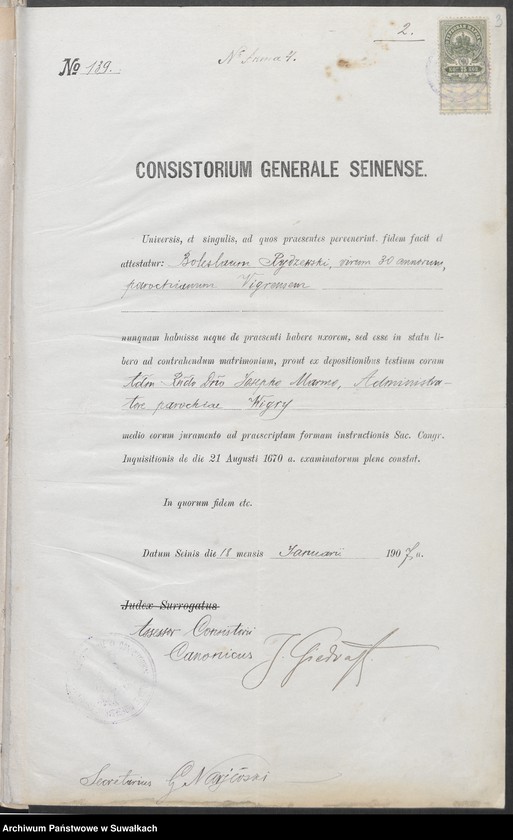 2.
3
№ 139.
CONSISTORIUM GENERALE SEINENSE.
Universis, et singulis, ad quos praesentes pervenerint. fidem facit et
attestatur: Boleslaum Rydzewski, virum 30 annorum,
parochianum Vigrensem
nunquam habuisse neque de praesenti habere uxorem, sed esse in statu li-
bero ad contrahendum matrimonium, prout ex depositionibus testium coram
Adm Rndo Dno Josepho Marmo, Administra-
tore parochiae Wigry
medio eorum juramento ad praescriptam formam instructionis Sac. Congr.
Inquisitionis de die 21 Augusti 1670 a. examinatorum plene constat.
In quorum fidem etc.
Datum Seinis die 18 mensis Januarii 1907 a.
Judex Surrogatus
Assesor Consistorii
Canonicus J.
Secretarius G.
Archiwum Państwowe w Suwałkach